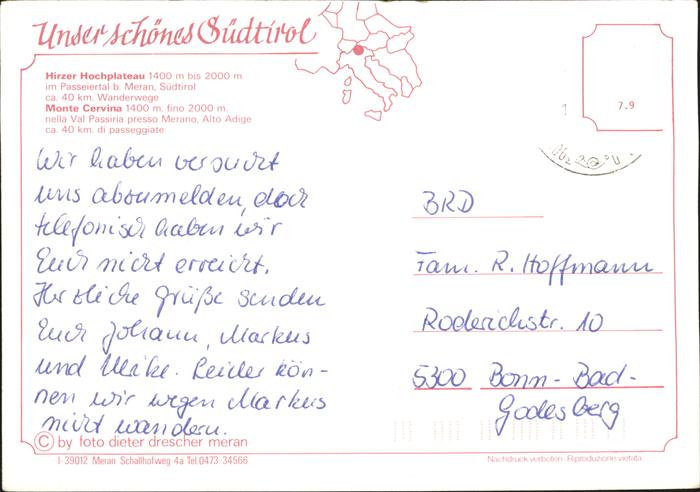 Unser schönes Südtirol
Hirzer Hochplateau 1400 m bis 2000 m
im Passeiertal b. Meran, Südtirol
ca. 40 km. Wanderwege
Monte Cervina 1400 m. fino 2000 m.
nella Val Passiria presso Merano, Alto Adige
ca. 40 km. di passeggiate
7.9
Wir haben versucht
uns abzumelden, doch
telefonisch haben wir
Euch nicht erreicht.
Herzliche Grüße senden
Euch Johann, Markus
und Ulrike. Leider kön-
nen wir wegen Markus
nicht wandern.
BRD
Fam. R. Hoffmann
Roderichstr. 10
5300 Bonn-Bad-
Godesberg
© by foto dieter drescher meran
I-39012 Meran Schallhofweg 4a Tel.0473-34566
Nachdruck verboten · Riproduzione vietata